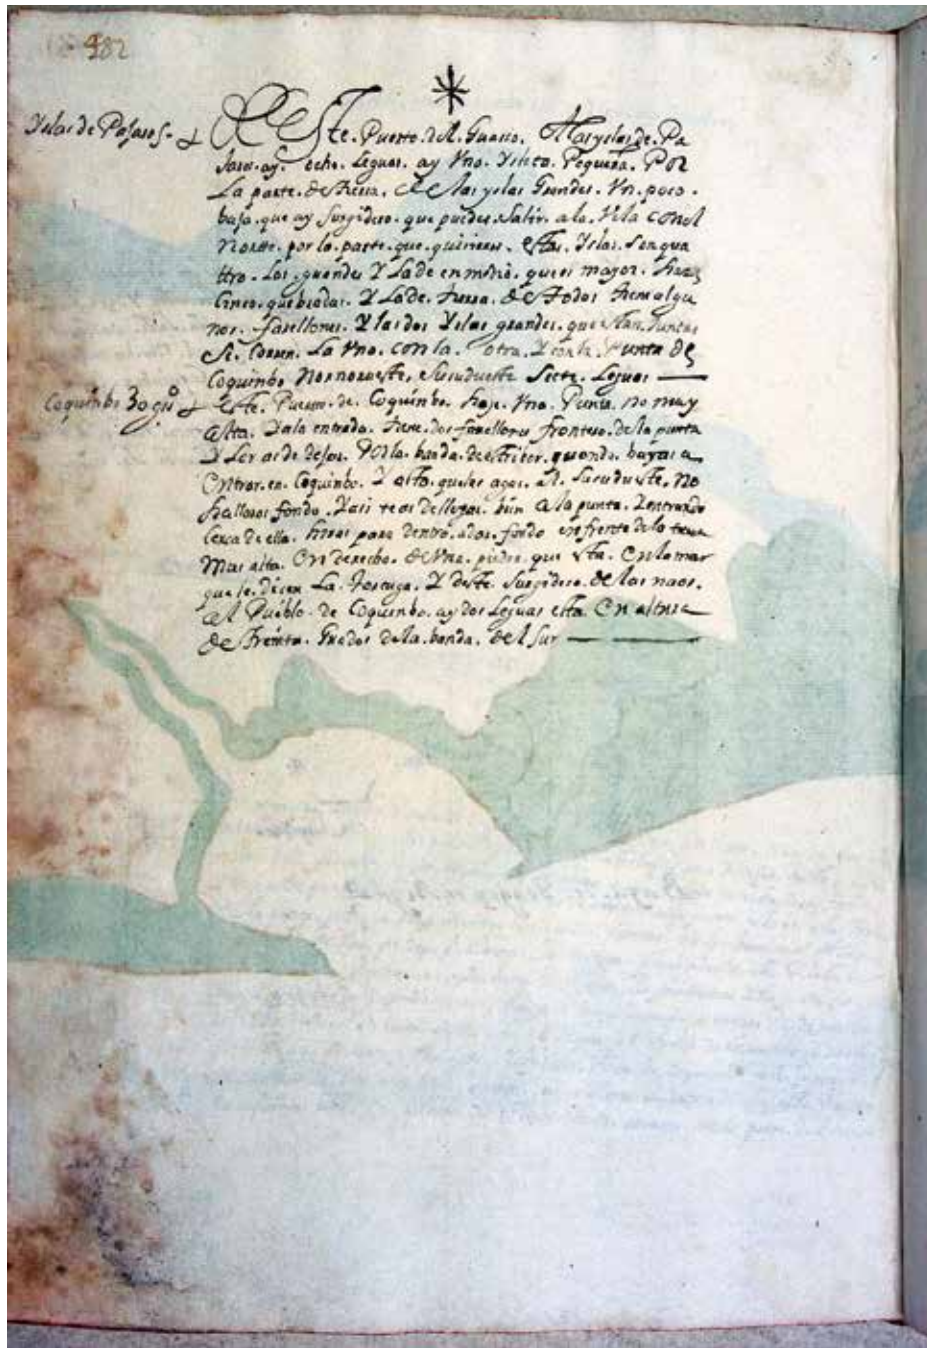 482
Yslas de Pajaros-
DEste. Puerto. del. Guasco. A las yslas. de. Pa
Jaros. ay. ocho. Leguas. ay Vna. Ysleta. Pequeña. Por
La parte. de tierra. de las yslas Grandes. Vn. poco.
baja. que ay surgidero. que puedes. salir. a la. Vela con el
Norte. por la parte. que. quisieres. estas. Yslas. son qua
ttro. Los. grandes Y La de en medio. que es mayor. haze
Cinco. quebradas. Y La de. tierra. de todas tiene algu
nos. farellones. Y las dos Yslas grandes. que estan. Juntas
Se. Corren. La Vna. con la. otra. Y con la. Punta de
Coquimbo Nornorueste, Susudueste siete. Leguas
Coquinbo 30 gs
este. Puerto. de. Coquinbo. haze. Vna. Punta. no muy
alta. Y a la entrada. tiene. dos farellones frontero. de la punta
Y los as de dejar. Por la. banda. de estribor. quando. bayas a
Entrar. en. Coquinbo. Y alto. que les agas. al. Susudueste. No
hallaras fondo. Y asi te as de llegar. bien a la punta. Y entrando
Cerca de ella. hiras para dentro. a dar. fondo en frente de la tierra
Mas alta. En derecho. de Vna. piedra. que esta. en la mar
que le. dicen La. tortuga. Y deste. Surgidero. de las naos.
al Pueblo. de Coquinbo. ay dos Leguas esta. En altura
de treinta. Grados de la. banda. del sur